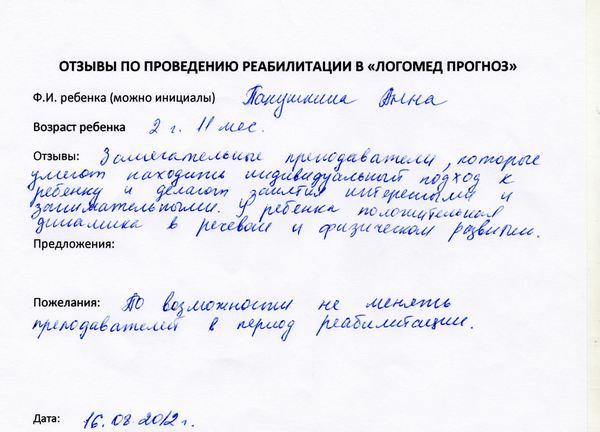 ОТЗЫВЫ ПО ПРОВЕДЕНИЮ РЕАБИЛИТАЦИИ В «ЛОГОМЕД ПРОГНОЗ»
Ф.И. ребенка (можно инициалы) Панушкина Анна
Возраст ребенка 2 г. 11 мес.
Отзывы: Замечательные преподаватели, которые
умеют находить индивидуальный подход к
ребенку и делают занятия интересными и
занимательными. У ребенка положительная
динамика в речевом и физическом развитии.
Предложения:
Пожелания: По возможности не менять
преподавателей в период реабилитации.
Дата: 16.08.2012 г.